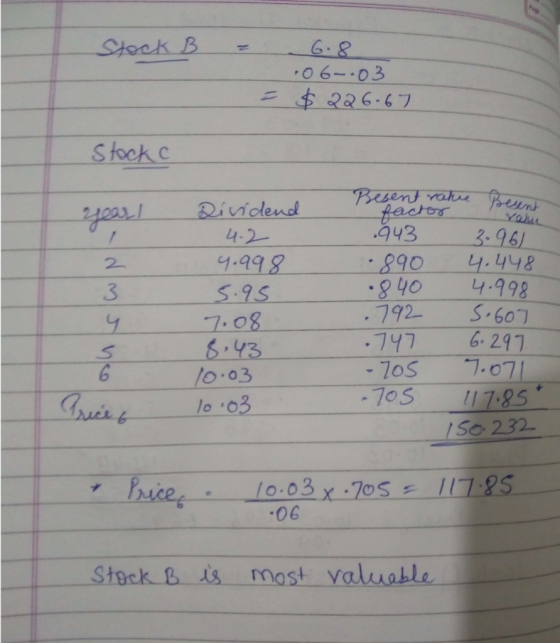 Stock B = 6.8
.06-.03
= $ 226.67
Stock C
year Dividend Present value factor Present value
1 4.2 .943 3.961
2 4.998 .890 4.448
3 5.95 .840 4.998
4 7.08 .792 5.607
5 8.43 .747 6.297
6 10.03 .705 7.071
Price6 10.03 .705 117.85*
150.232
* Price6 = 10.03 × .705 = 117.85
.06
Stock B is most valuable